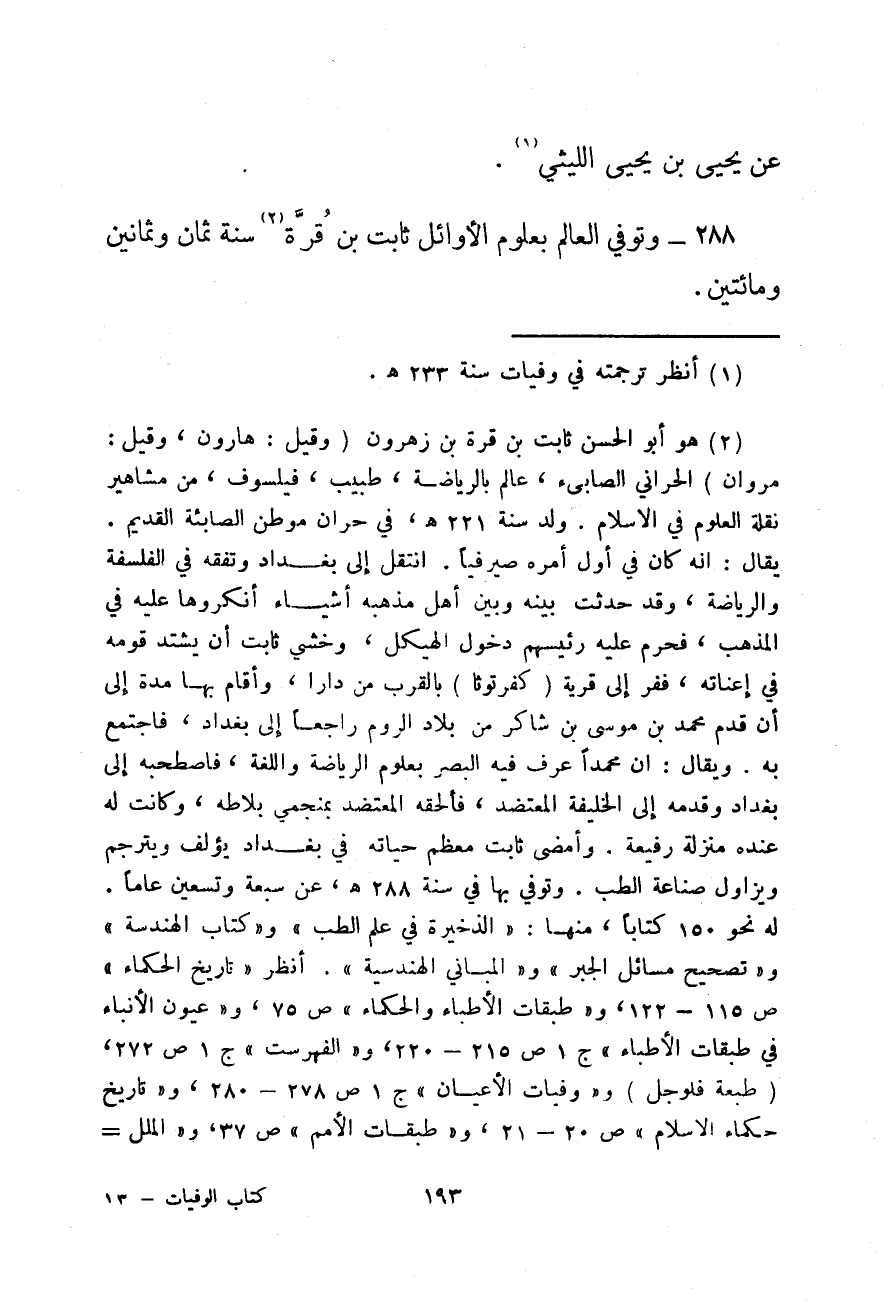 عن يحيى بن يحيى الليثي(١) .
٢٨٨ – وتوفي العالم بعلوم الأوائل ثابت بن قُرَّة(٢) سنة ثمان وثمانين
ومائتين .
(١) أنظر ترجمته في وفيات سنة ٢٣٣ ه .
(٢) هو أبو الحسن ثابت بن قرة بن زهرون ( وقيل : هارون ، وقيل :
مروان ) الحراني الصابىء ، عالم بالرياضة ، طبيب ، فيلسوف ، من مشاهير
نقلة العلوم في الاسلام . ولد سنة ٢٢١ ه ، في حران موطن الصابئة القديم .
يقال : انه كان في أول أمره صيرفياً . انتقل إلى بغداد وتفقه في الفلسفة
والرياضة ، وقد حدثت بينه وبين أهل مذهبه أشياء أنكروها عليه في
المذهب ، فحرم عليه رئيسهم دخول الهيكل ، وخشي ثابت أن يشتد قومه
في إعناته ، ففر إلى قرية ( كفرتوثا ) بالقرب من دارا ، وأقام بها مدة إلى
أن قدم محمد بن موسى بن شاكر من بلاد الروم راجعاً إلى بغداد ، فاجتمع
به . ويقال : ان محمداً عرف فيه البصر بعلوم الرياضة واللغة ، فاصطحبه إلى
بغداد وقدمه إلى الخليفة المعتضد ، فألحقه المعتضد بمنجمي بلاطه ، وكانت له
عنده منزلة رفيعة . وأمضى ثابت معظم حياته في بغداد يؤلف ويترجم
ويزاول صناعة الطب . وتوفي بها في سنة ٢٨٨ ه ، عن سبعة وتسعين عاماً .
له نحو ١٥٠ كتاباً ، منها : « الذخيرة في علم الطب » و« كتاب الهندسة »
و« تصحيح مسائل الجبر » و« المباني الهندسية » . أنظر « تاريخ الحكماء »
ص ١١٥ – ١٢٢ ، و« طبقات الأطباء والحكماء » ص ٧٥ ، و« عيون الأنباء
في طبقات الأطباء » ج ١ ص ٢١٥ – ٢٢٠ ، و« الفهرست » ج ١ ص ٢٧٢ ،
( طبعة فلوجل ) و« وفيات الأعيان » ج ١ ص ٢٧٨ – ٢٨٠ ، و« تاريخ
حكماء الاسلام » ص ٢٠ – ٢١ ، و« طبقات الأمم » ص ٣٧ ، و« الملل =
١٩٣
كتاب الوفيات – ١٣